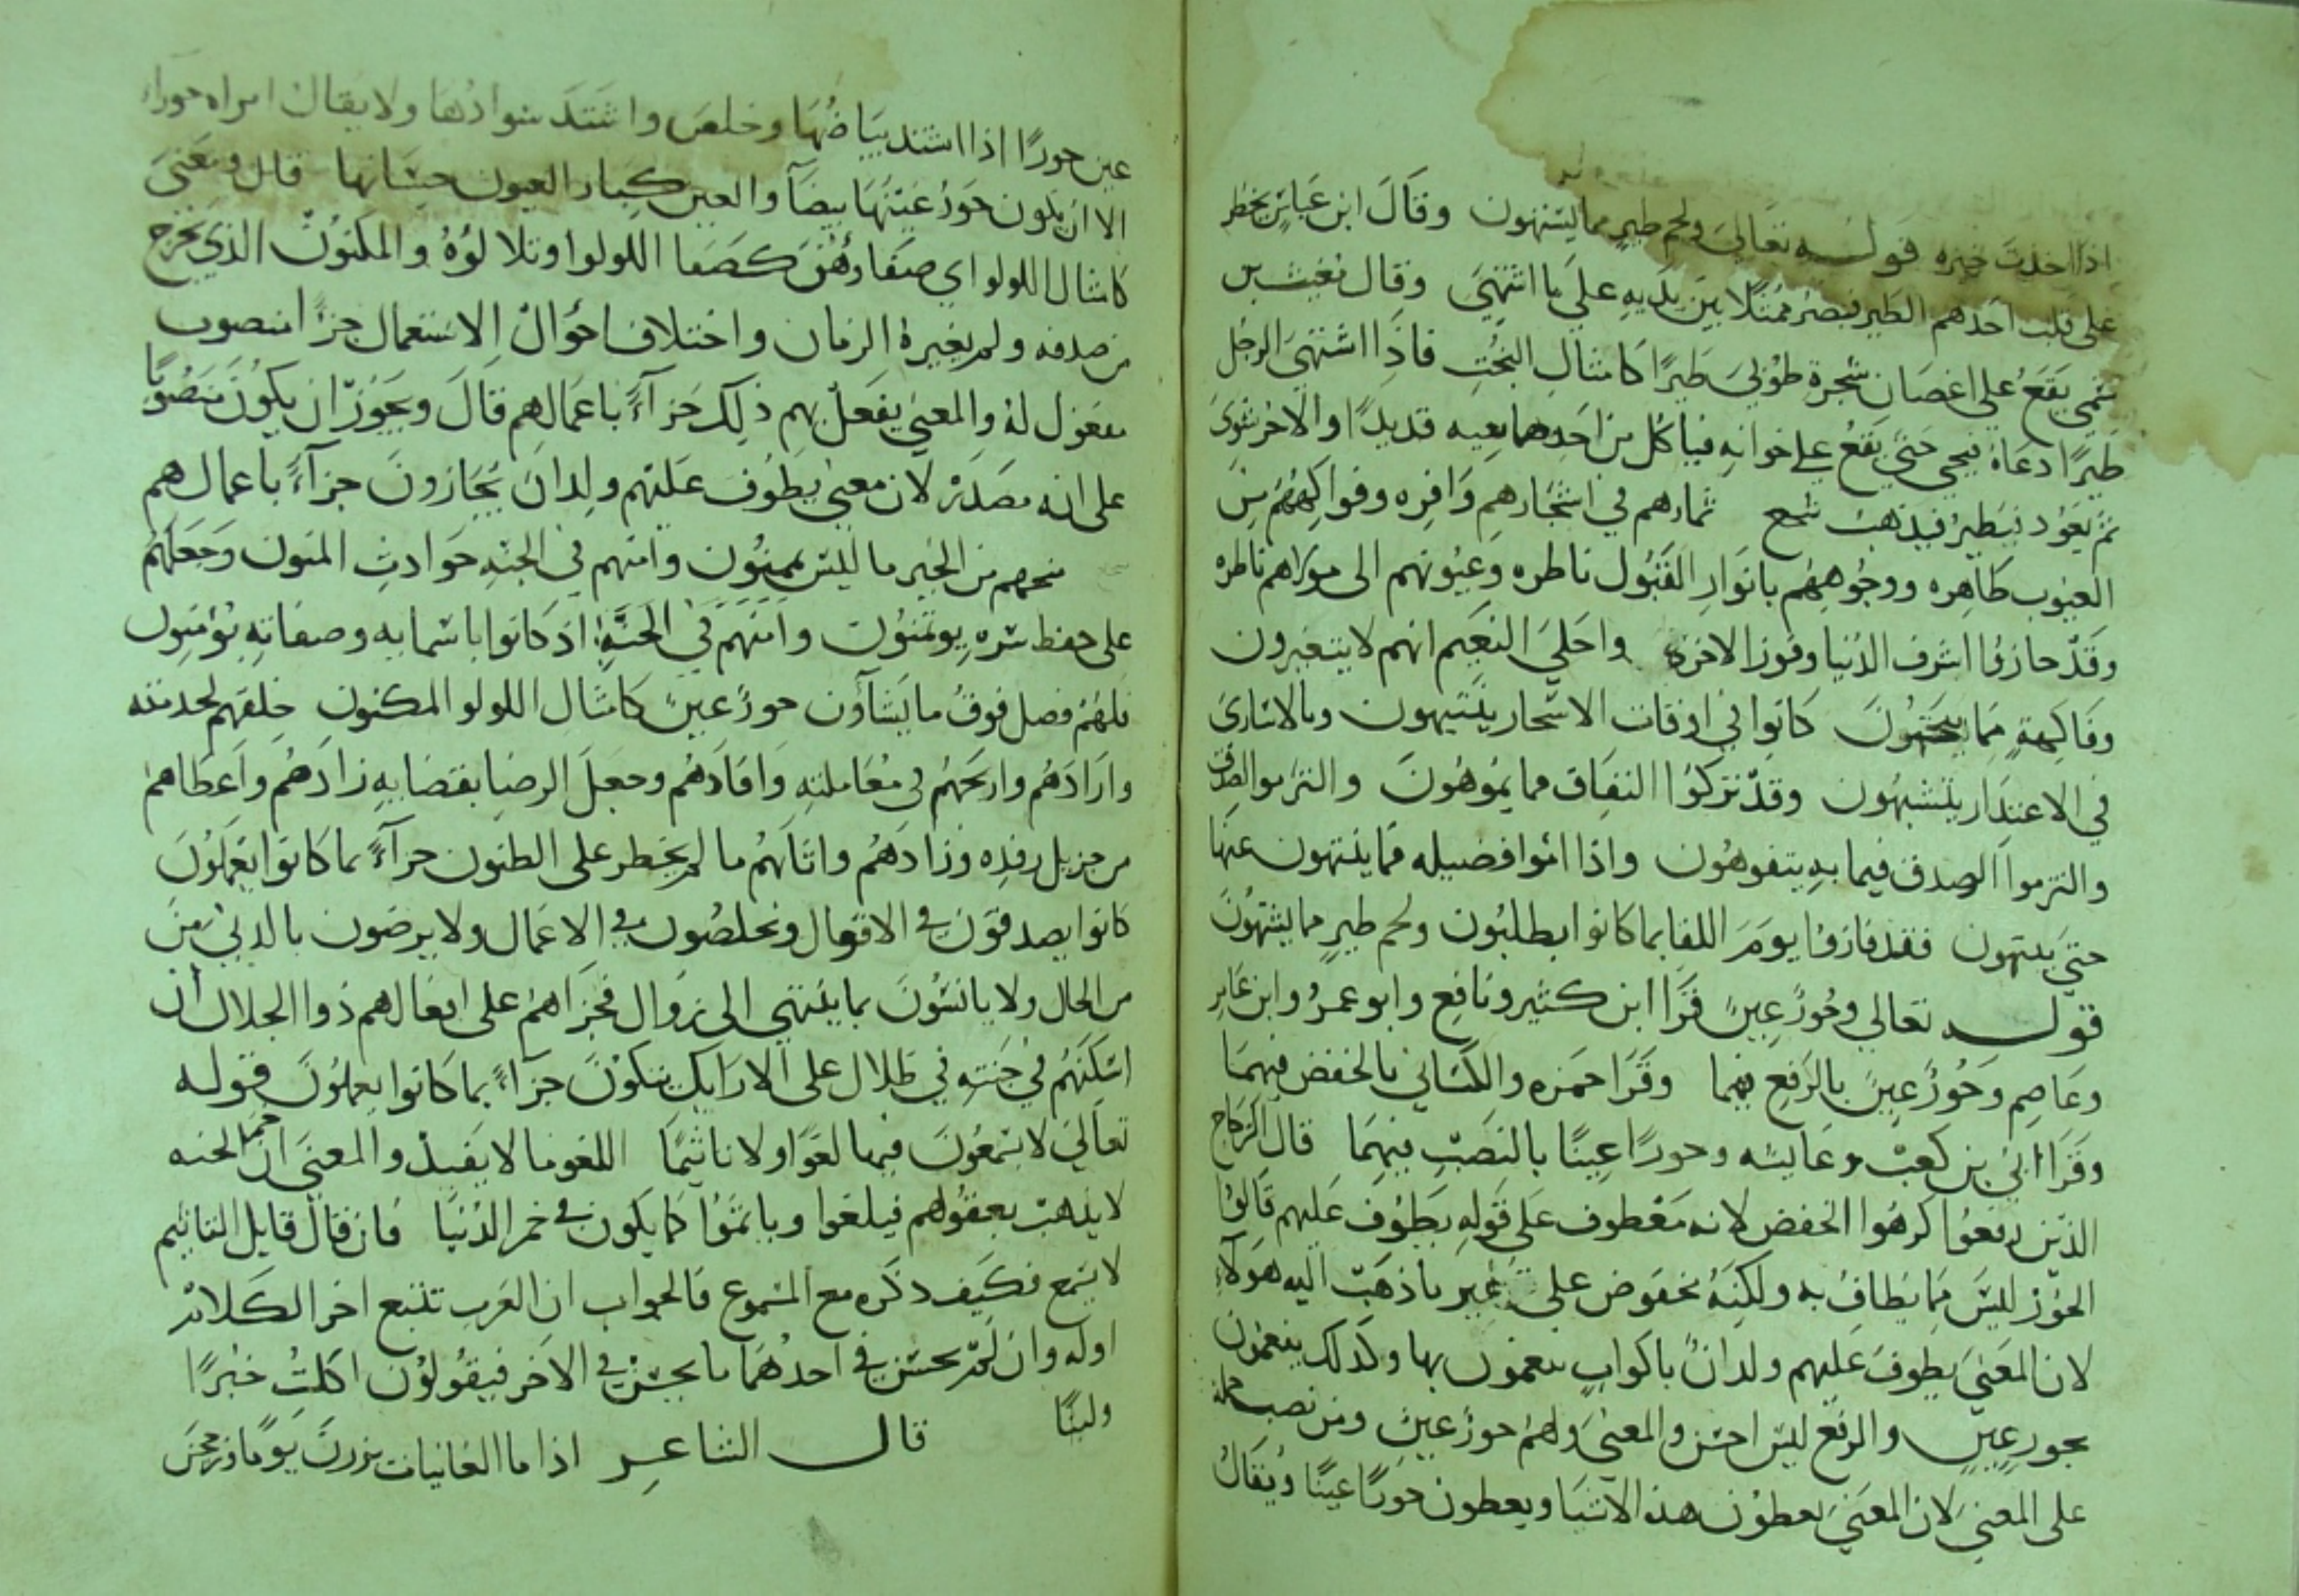 اذا اخذت خيره قوله تعالى ولحم طير مما يشتهون وقال ابن عباس يخطر
على قلب احدهم الطير فيصير ممثلا بين يديه على ما اشتهى وقال مغيث بن
سمي يقع على اغصان شجرة طوبى طيرًا كامثال البخت فاذا اشتهى الرجل
طيرًا دعاه فيجي حتى يقع على خوانه فياكل من احد جانبيه قديدًا والاخر شوى
ثم يعود فيطير فيذهب سجع ثمارهم في اشجارهم وافره وفواكههم من
العيوب طاهره ووجوههم بانوار القبول ناظره وعيونهم الى مولاهم ناظره
وقد حازوا شرف الدنيا وفوز الاخرة واحلى النعيم انهم لا يتغيرون
وفاكهة مما يتخيرون كانوا في اوقات الاسحار ينتبهون وبالاسارى
في الاعتذار يتشبهون وقد تركوا النفاق مما يموهون والتزموا الصدق
والتزموا الصدق فيما به يتفوهون واذا اتوا فضيله فما ينتهون عنها
حتى ينتهون فقد فازوا يوم اللقا بما كانوا يطلبون ولحم طير مما يشتهون
قوله تعالى وحورٌ عينٌ قرا ابن كثير ونافع وابو عمرو وابن عامر
وعاصم وحورٌ عينٌ بالرفع فيهما وقرا حمزه والكسائي بالخفض فيهما
وقرا ابي بن كعب وعايشه وحورًا عينًا بالنصب فيهما قال الزجاج
الذين رفعوا كرهوا الخفض لانه معطوف على قوله يطوف عليهم قالوا
الحور ليس مما يطاف به ولكنه مخفوض على غير ما ذهب اليه هولاء
لان المعنى يطوف عليهم ولدانٌ باكوابٍ ينعمون بها وكذلك ينعمون
بحورٍ عينٍ والرفع احسن والمعنى ولهم حورٌ عينٌ ومن نصب حمله
على المعنى لان المعنى يعطون هذه الاشيا ويعطون حورًا عينًا ويقال
عين حورًا اذا اشتد بياضها وخلص واشتد سوادها ولا يقال امراه حوراء
الا ان يكون حور عينها بيضا والعين كبار العيون حسانها قال ومعنى
كامثال اللولو اي صفاوهن كصفا اللولو وتلالوه والمكنون الذي يخرج
من صدفه ولم يغيره الزمان واختلاف احوال الاستعمال جزاء منصوب
مفعول له والمعنى يفعل بهم ذلك جزآءً باعمالهم قال ويجوز ان يكون منصوبا
على انه مصدر لان معنى يطوف عليهم ولدان يجازون جزآءً باعمالهم
منحهم من الخير ما ليس بممنون وامنهم في الجنه حوادث المنون وجعلهم
على حفظ سره يوتمنون وامنهم في الجنة اذ كانوا باسمايه وصفاته يؤمنون
فلهم فضل فوق ما يشآؤن حورٌ عينٌ كامثال اللولو المكنون خلقهم لخدمته
وارادهم واربحهم في معاملته وافادهم وجعل الرضا بقضايه زادهم واعطاهم
من جزيل رفده وزادهم واثابهم ما لم يخطر على الظنون جزآءً بما كانوا يعملون
كانوا يصدقون في الاقوال ويخلصون في الاعمال ولا يرضون بالدني من
من الحال ولا يانسون بما ينتهي الى زوال فجزاهم على افعالهم ذوا الجلال أن
اسكنهم في جنته في ظلال على الارايك يتكون جزاءً بما كانوا يعملون قوله
تعالى لا يسمعون فيها لغوًا ولا تاثيمًا اللغو ما لا يفيد والمعنى ان خمر الجنه
لا يذهب بعقولهم فيلغوا وياثموا كما يكون في خمر الدنيا فان قال قايل التاثيم
لا يسمع فكيف ذكره مع المسموع فالجواب ان العرب تتبع اخر الكلام
اوله وان لم يحسن في احدهما ما يحسن في الاخر فيقولون اكلتُ خبزًا
ولبنًا قال الشاعر اذا ما الغانيات برزن يومًا وزججن